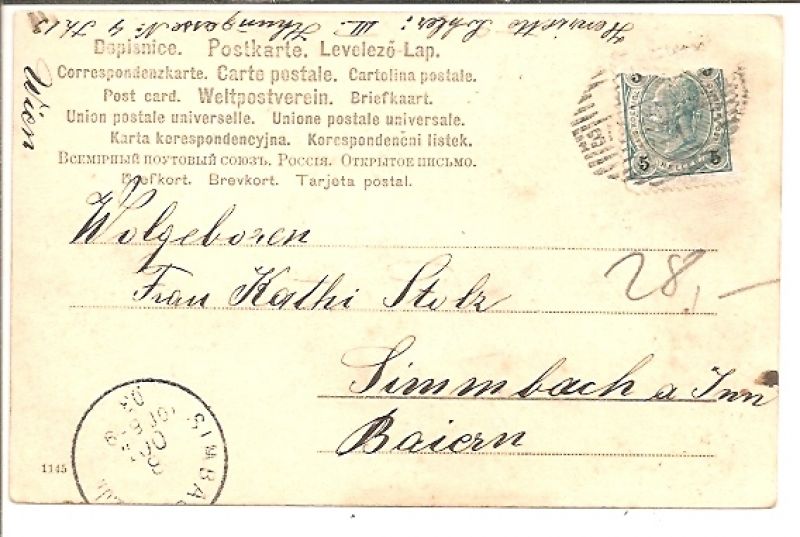 Henriette III. Khungasse № 9 Th 13
Wien
Dopisnice. Postkarte. Levelező-Lap.
Correspondenzkarte. Carte postale. Cartolina postale.
Post card. Weltpostverein. Briefkaart.
Union postale universelle. Unione postale universale.
Karta korespondencyjna. Korespondenčni listek.
Всемірный поутовый союзъ. Россія. Открытое письмо.
Brefkort. Brevkort. Tarjeta postal.
5 5
5 5
Wolgeboren
Frau Kathi Stolz
28,—
Simmbach a Inn
Baiern
SIMBAC
03
1145